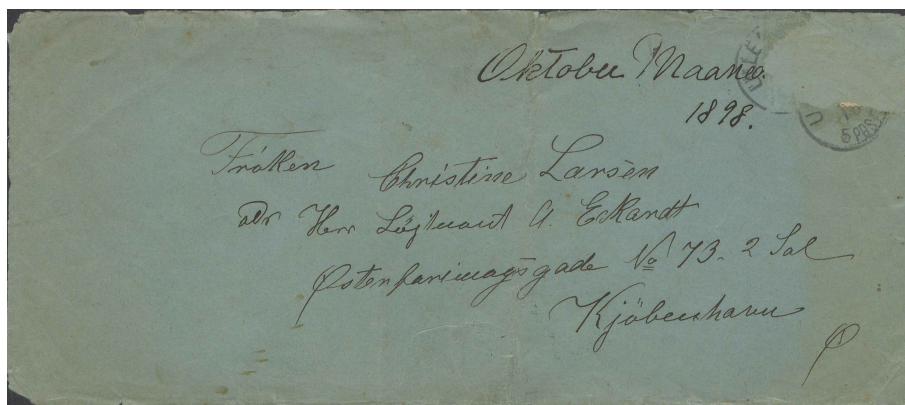 Oktober Maaned.
1898.
Fröken Christine Larsen
adr Herr Löjtnant A. Eckardt
Østerfarimagsgade No 73. 2 Sal
Kjöbenhavn
Ø
5 POST